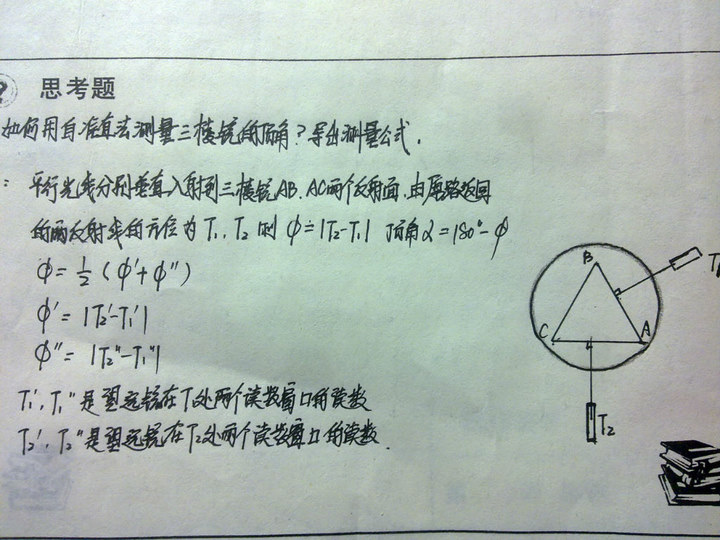 ?
思考题
如何用自准直法测量三棱镜的顶角?导出测量公式.
: 平行光线分别垂直入射到三棱镜AB、AC两个反射面,由原路返回
的两反射线的方位为T₁、T₂则 φ=|T₂-T₁| 顶角α=180°-φ
φ=½(φ'+φ")
φ'=|T₂'-T₁'|
φ"=|T₂"-T₁"|
T₁'、T₁"是望远镜在T处两个读数窗口的读数
T₂'、T₂"是望远镜在T₂处两个读数窗口的读数.
B
T₁
C
A
T₂